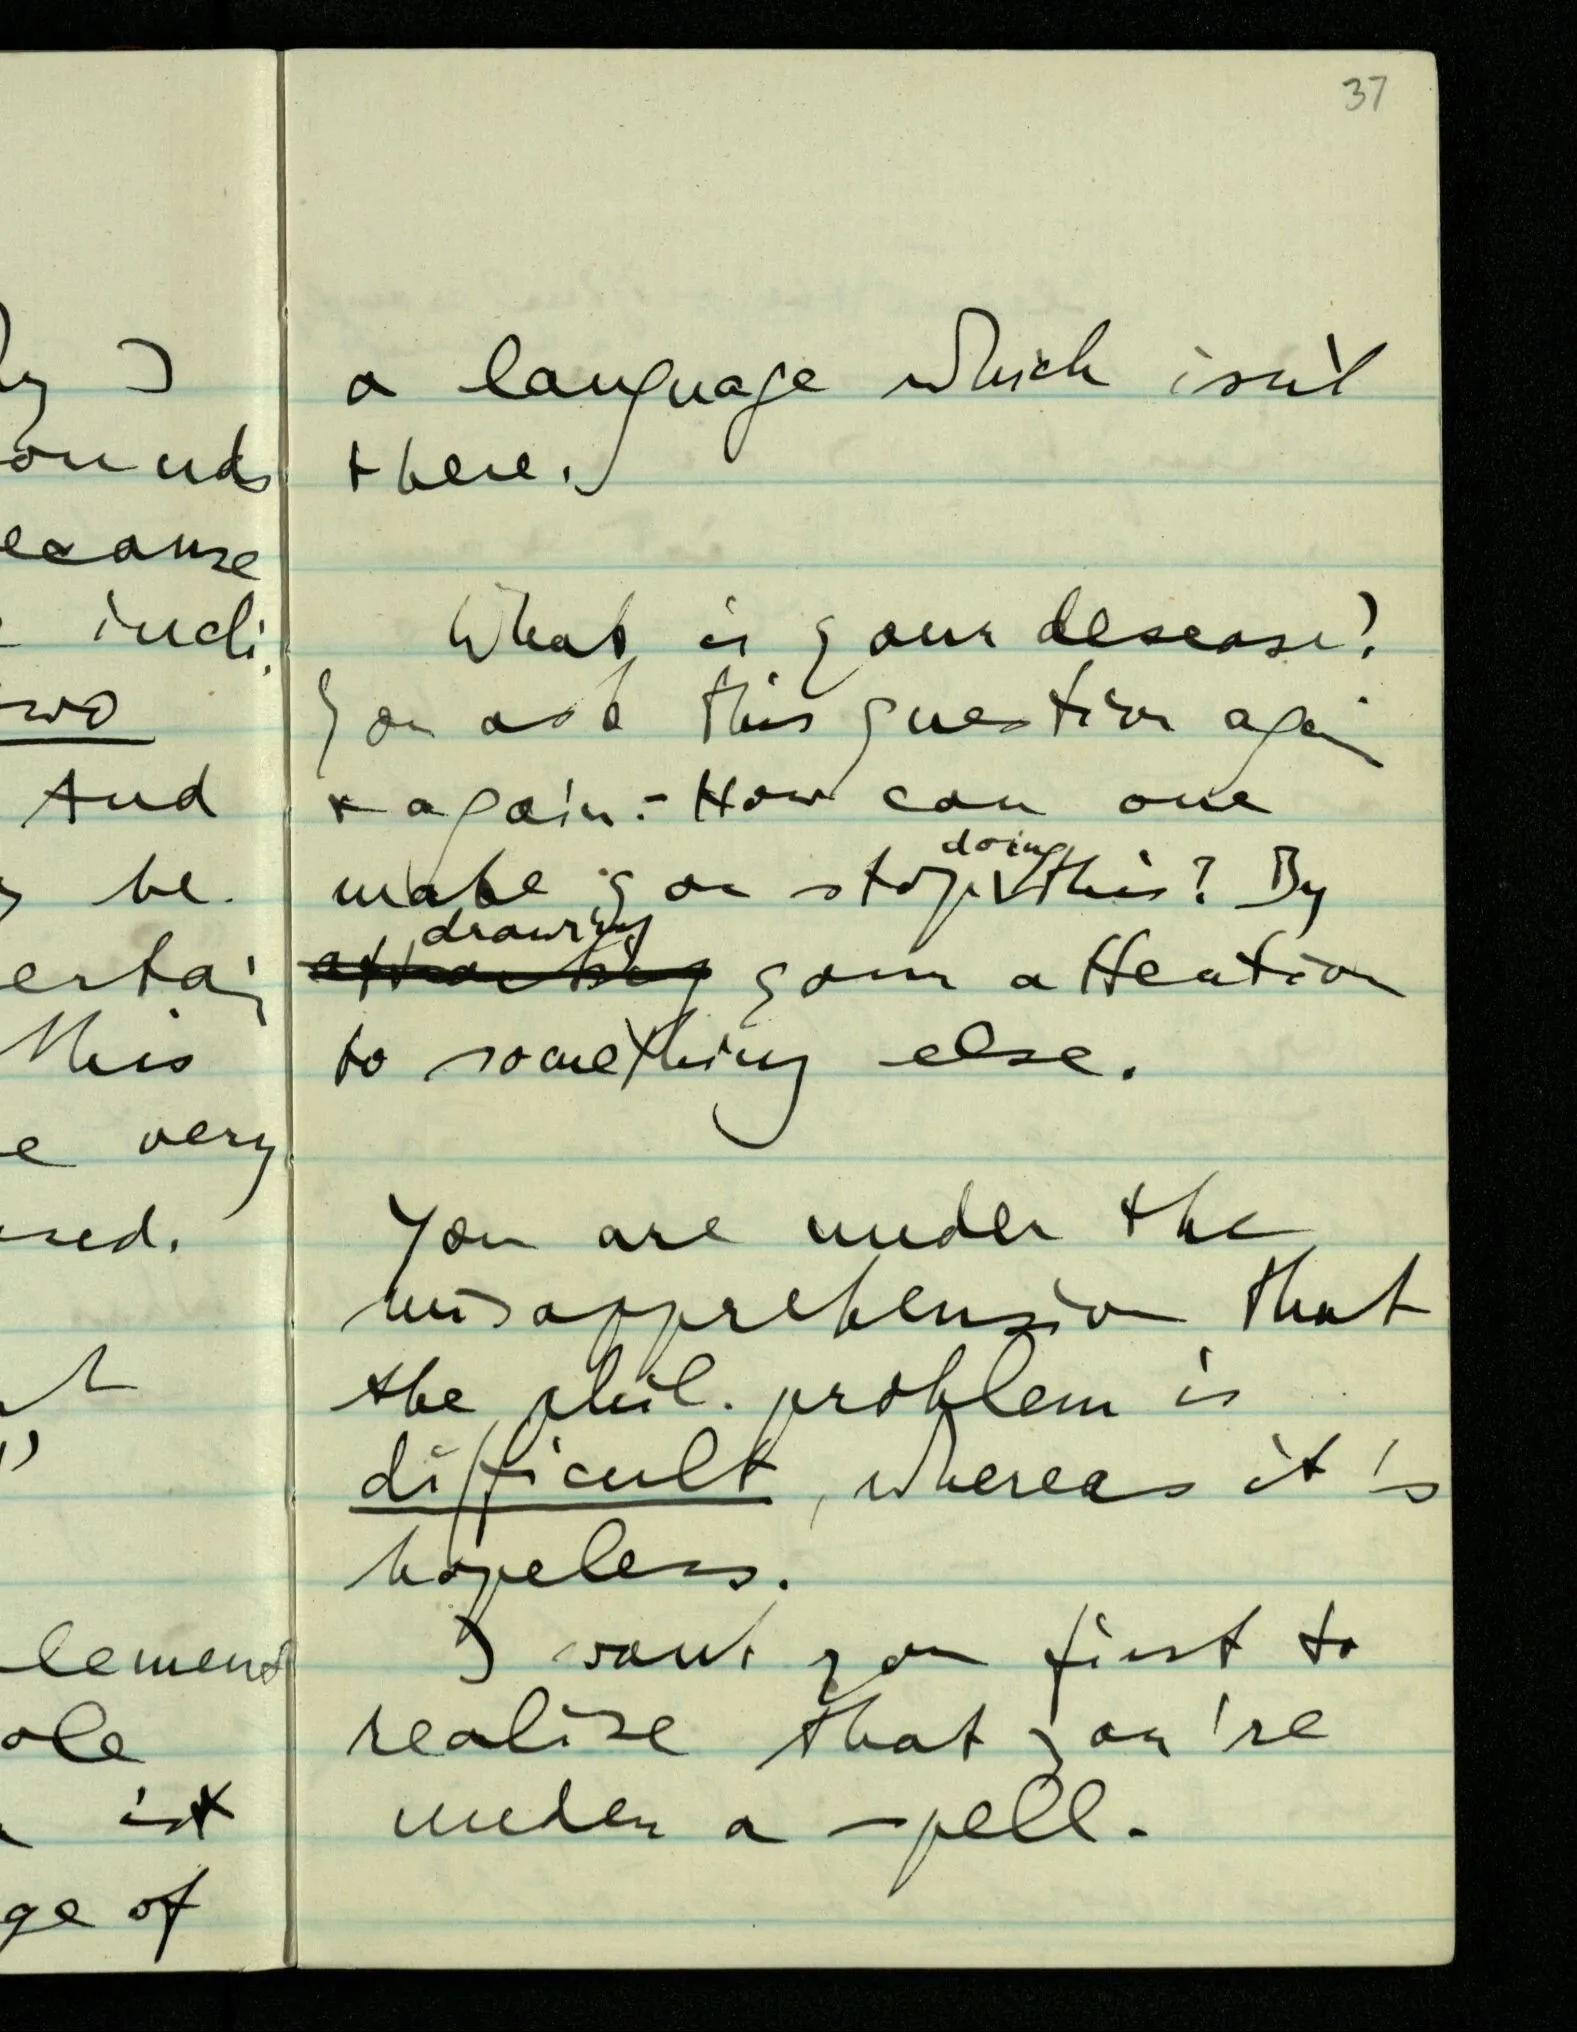 37
ly I
ounds
ecause
indi,
two
And
be.
ertai
This
e very
sed.
lement
ole
ist
ge of
a language which isn't
there.
What is your desease?
You ask this question again
& again. – How can one
doing
make you stop this? By
drawing
attracting your attention
to something else.
You are under the
misapprehension that
the phil. problem is
difficult, whereas it's
hopeless.
I want you first to
realize that you're
under a spell.